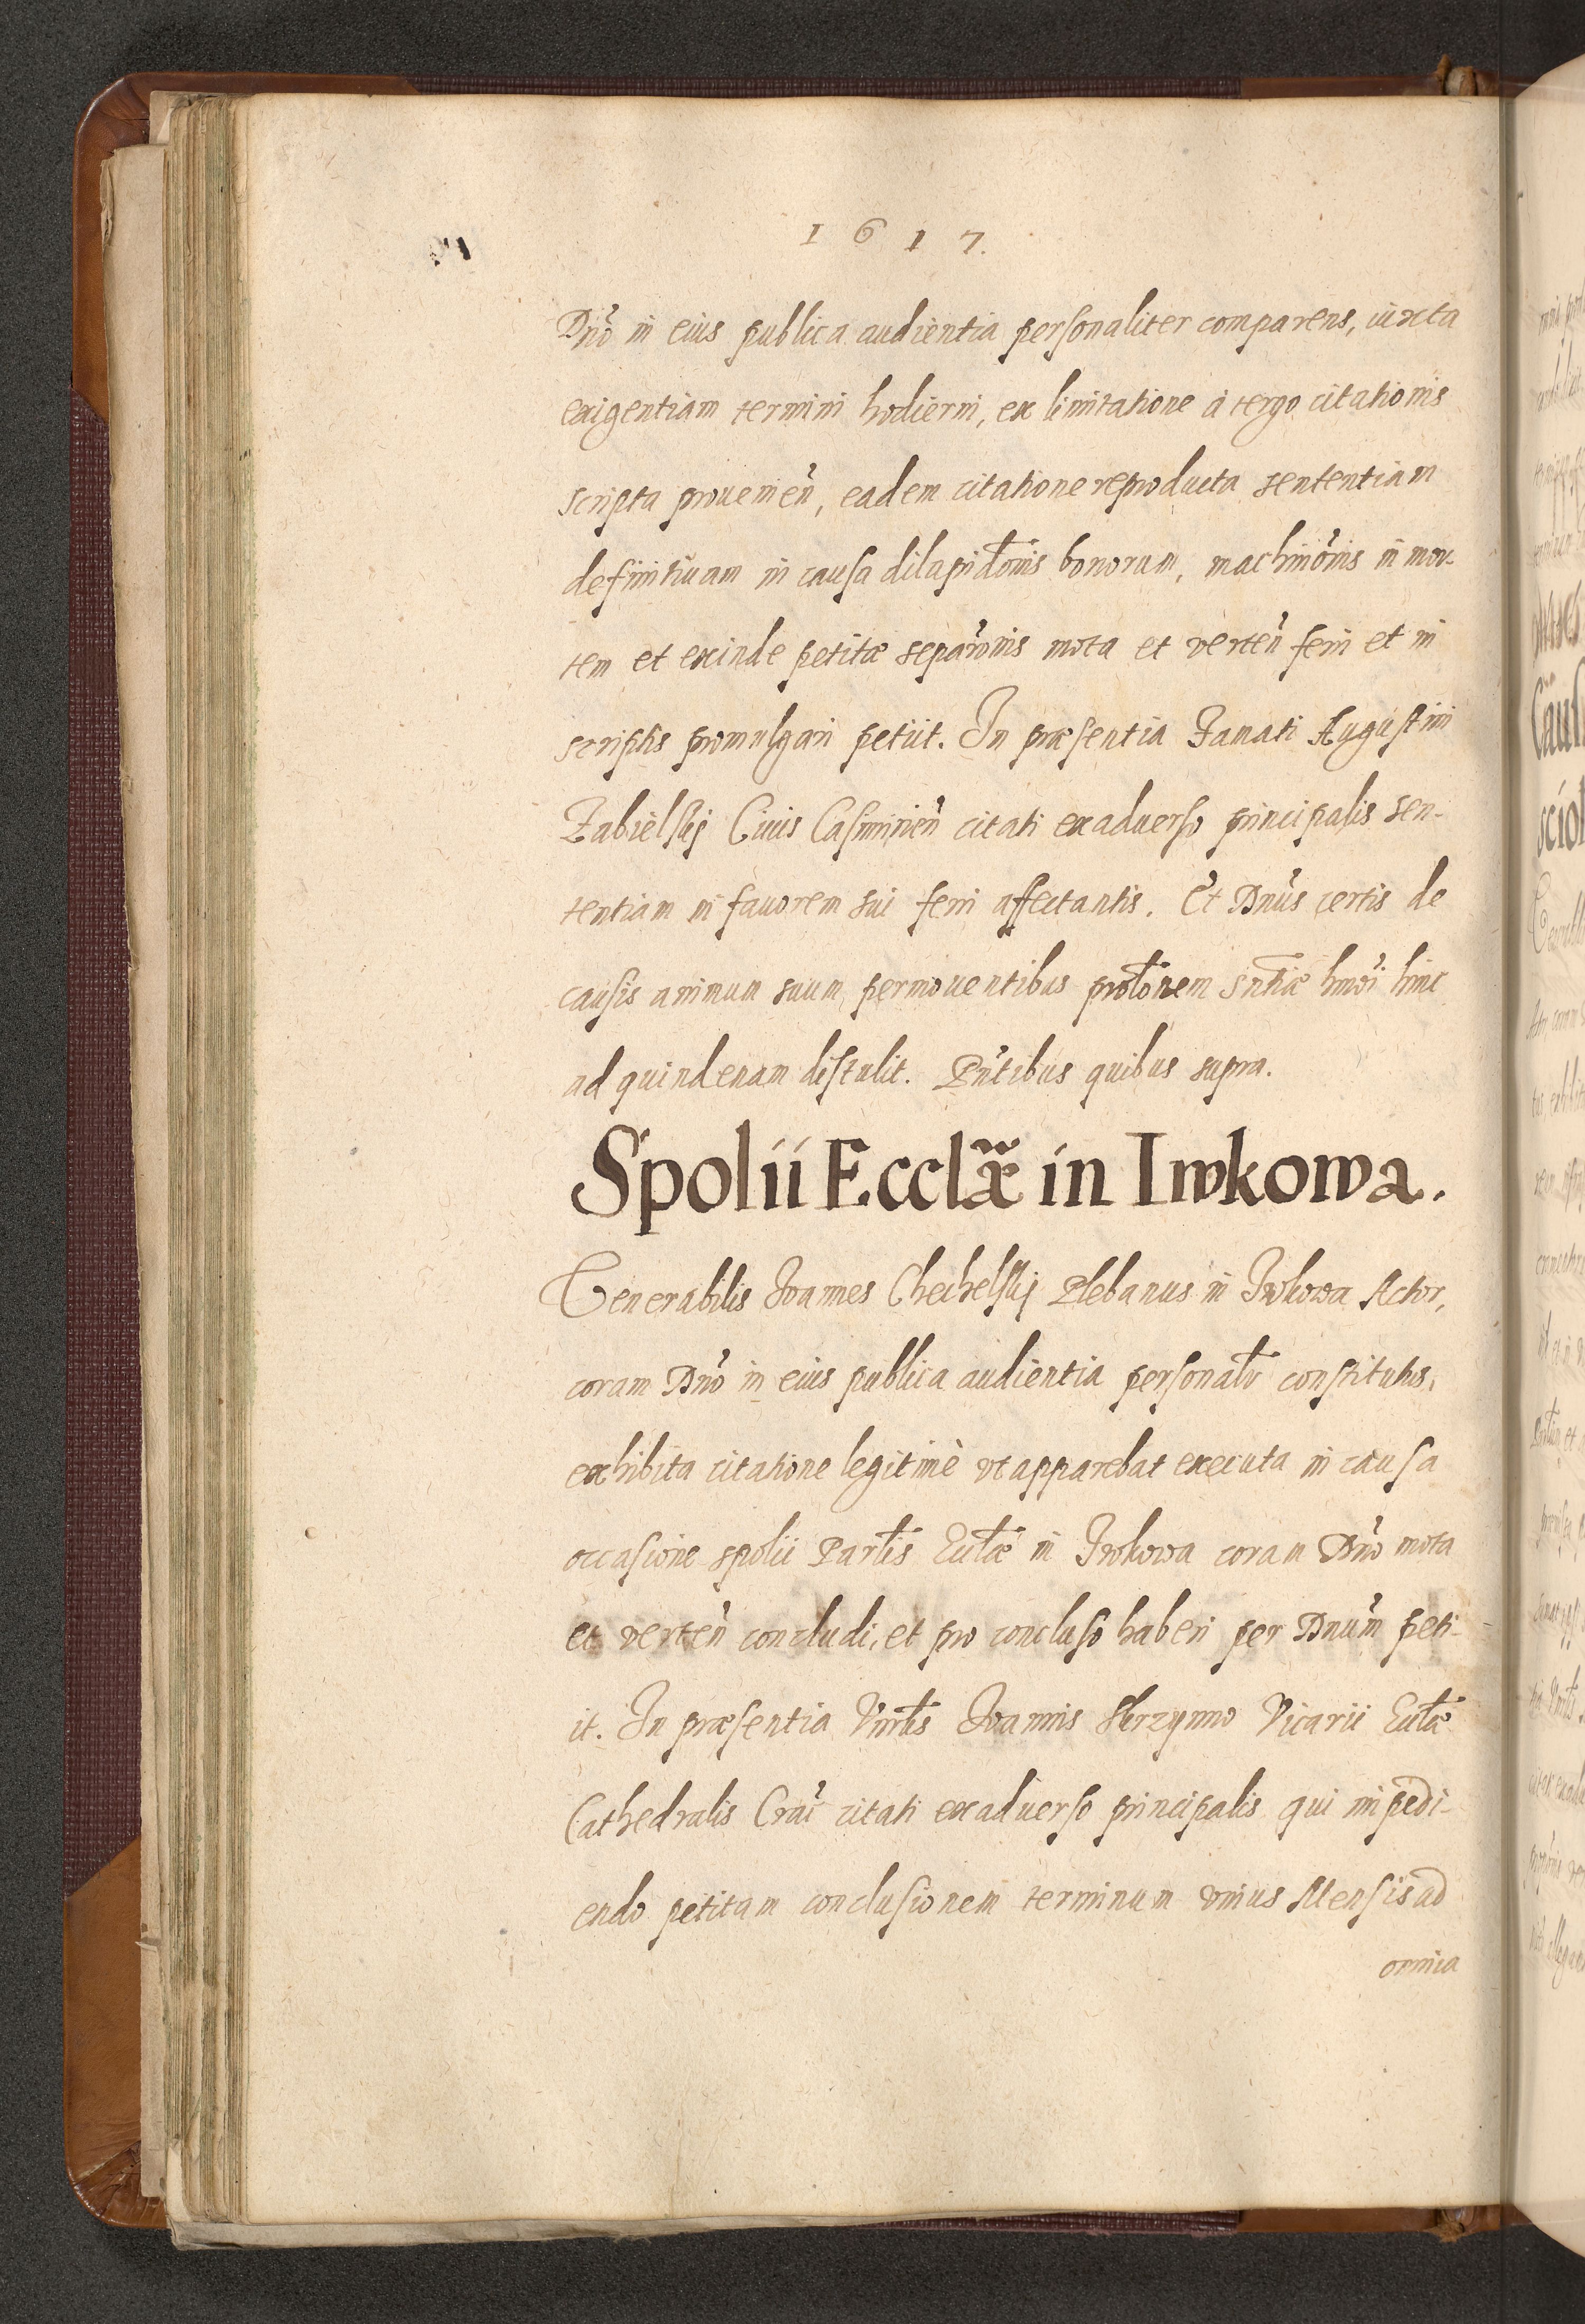 1617.
Dno in eius publica audientia personaliter comparens, iuxta
exigentiam termini hodierni, ex limitatione à tergo citationis
scripta prouenien, eadem citatione reproducta sententiam
definitiuam in causa dilapidtonis bonorum, machinõnis in mor-
tem et exinde petitæ separõnis mota et verten ferri et in
scriptis promulgari petiit. In præsentia Famati Augustini
Zabielskij Ciuis Casimirien citati exaduerso principalis sen-
tentiam in fauorem sui ferri affectantis. Et Dnus certis de
causis animum suum permouentibus protonem sntiæ hmoi hinc
ad quindenam distulit. Pntibus quibus supra.
Spolii Ecclæ in Iwkowa.
Venerabilis Ioannes Chechelskij Plebanus in Iwkowa Actor,
coram Dno in eius publica audientia personalr constitutus,
exhibita citatione legitimè vt apparebat executa in causa
occasione spolii Partis Ecclæ in Iwkowa coram Dno mota
et verten concludi, et pro concluso haberi per Dnum peti-
it. In præsentia Vnrlis Ioannis Skrzynno Vicarii Ecclæ
Cathedralis Crac citati exaduerso principalis qui impedi-
endo petitam conclusionem terminum vnius Mensis ad
omnia